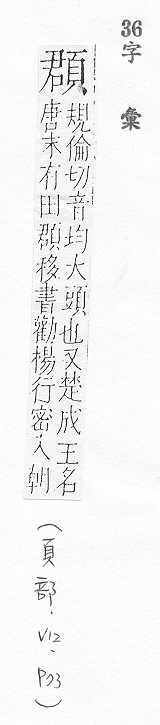 36字 彙
頵
規倫切音均大頭也又楚成王名
唐末有田頵移書勸楊行密入朝
(頁部．V12．P93)